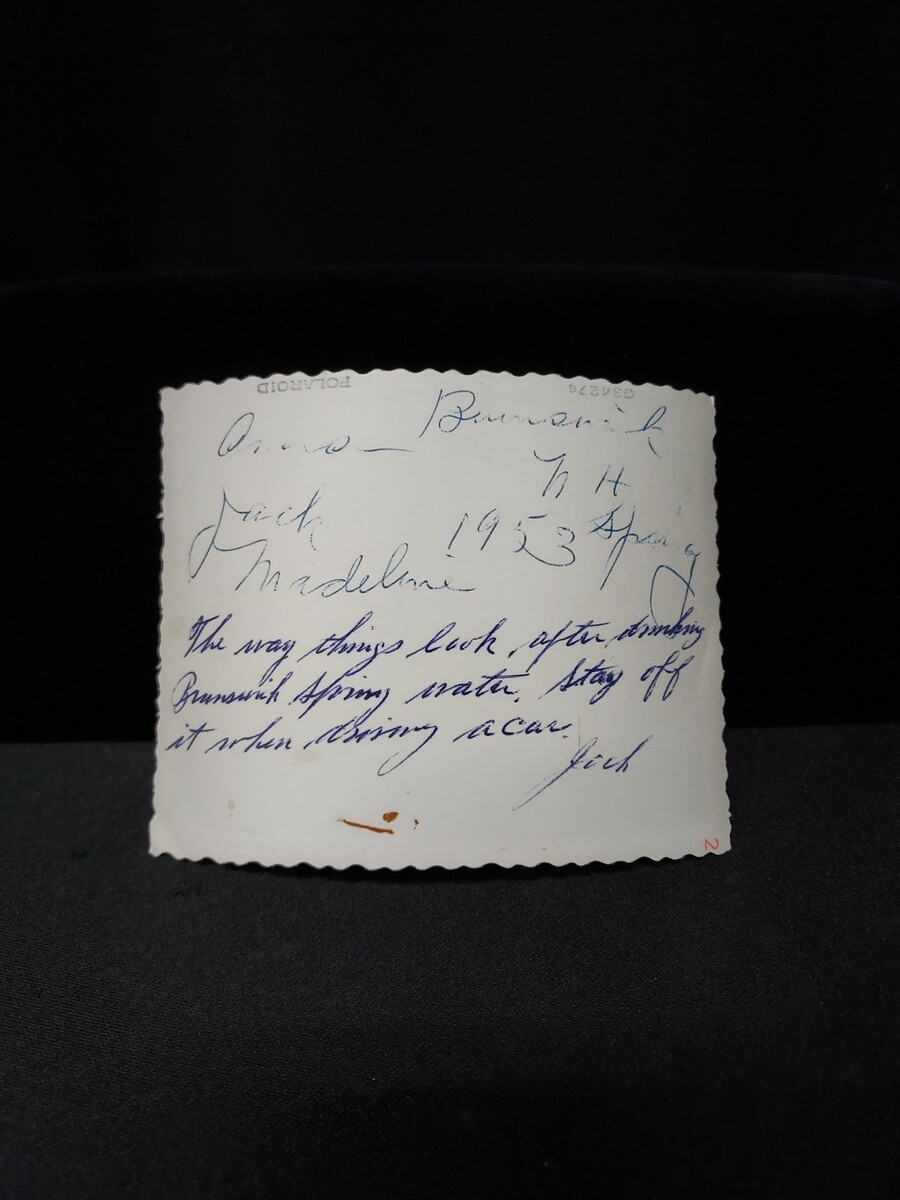 POLAROID G34276
Anna Brunswick
N H
Jack 1953 Spring
Madeline
The way things look after drinking
Brunswick Spring water. Stay off
it when driving a car.
Jack
2